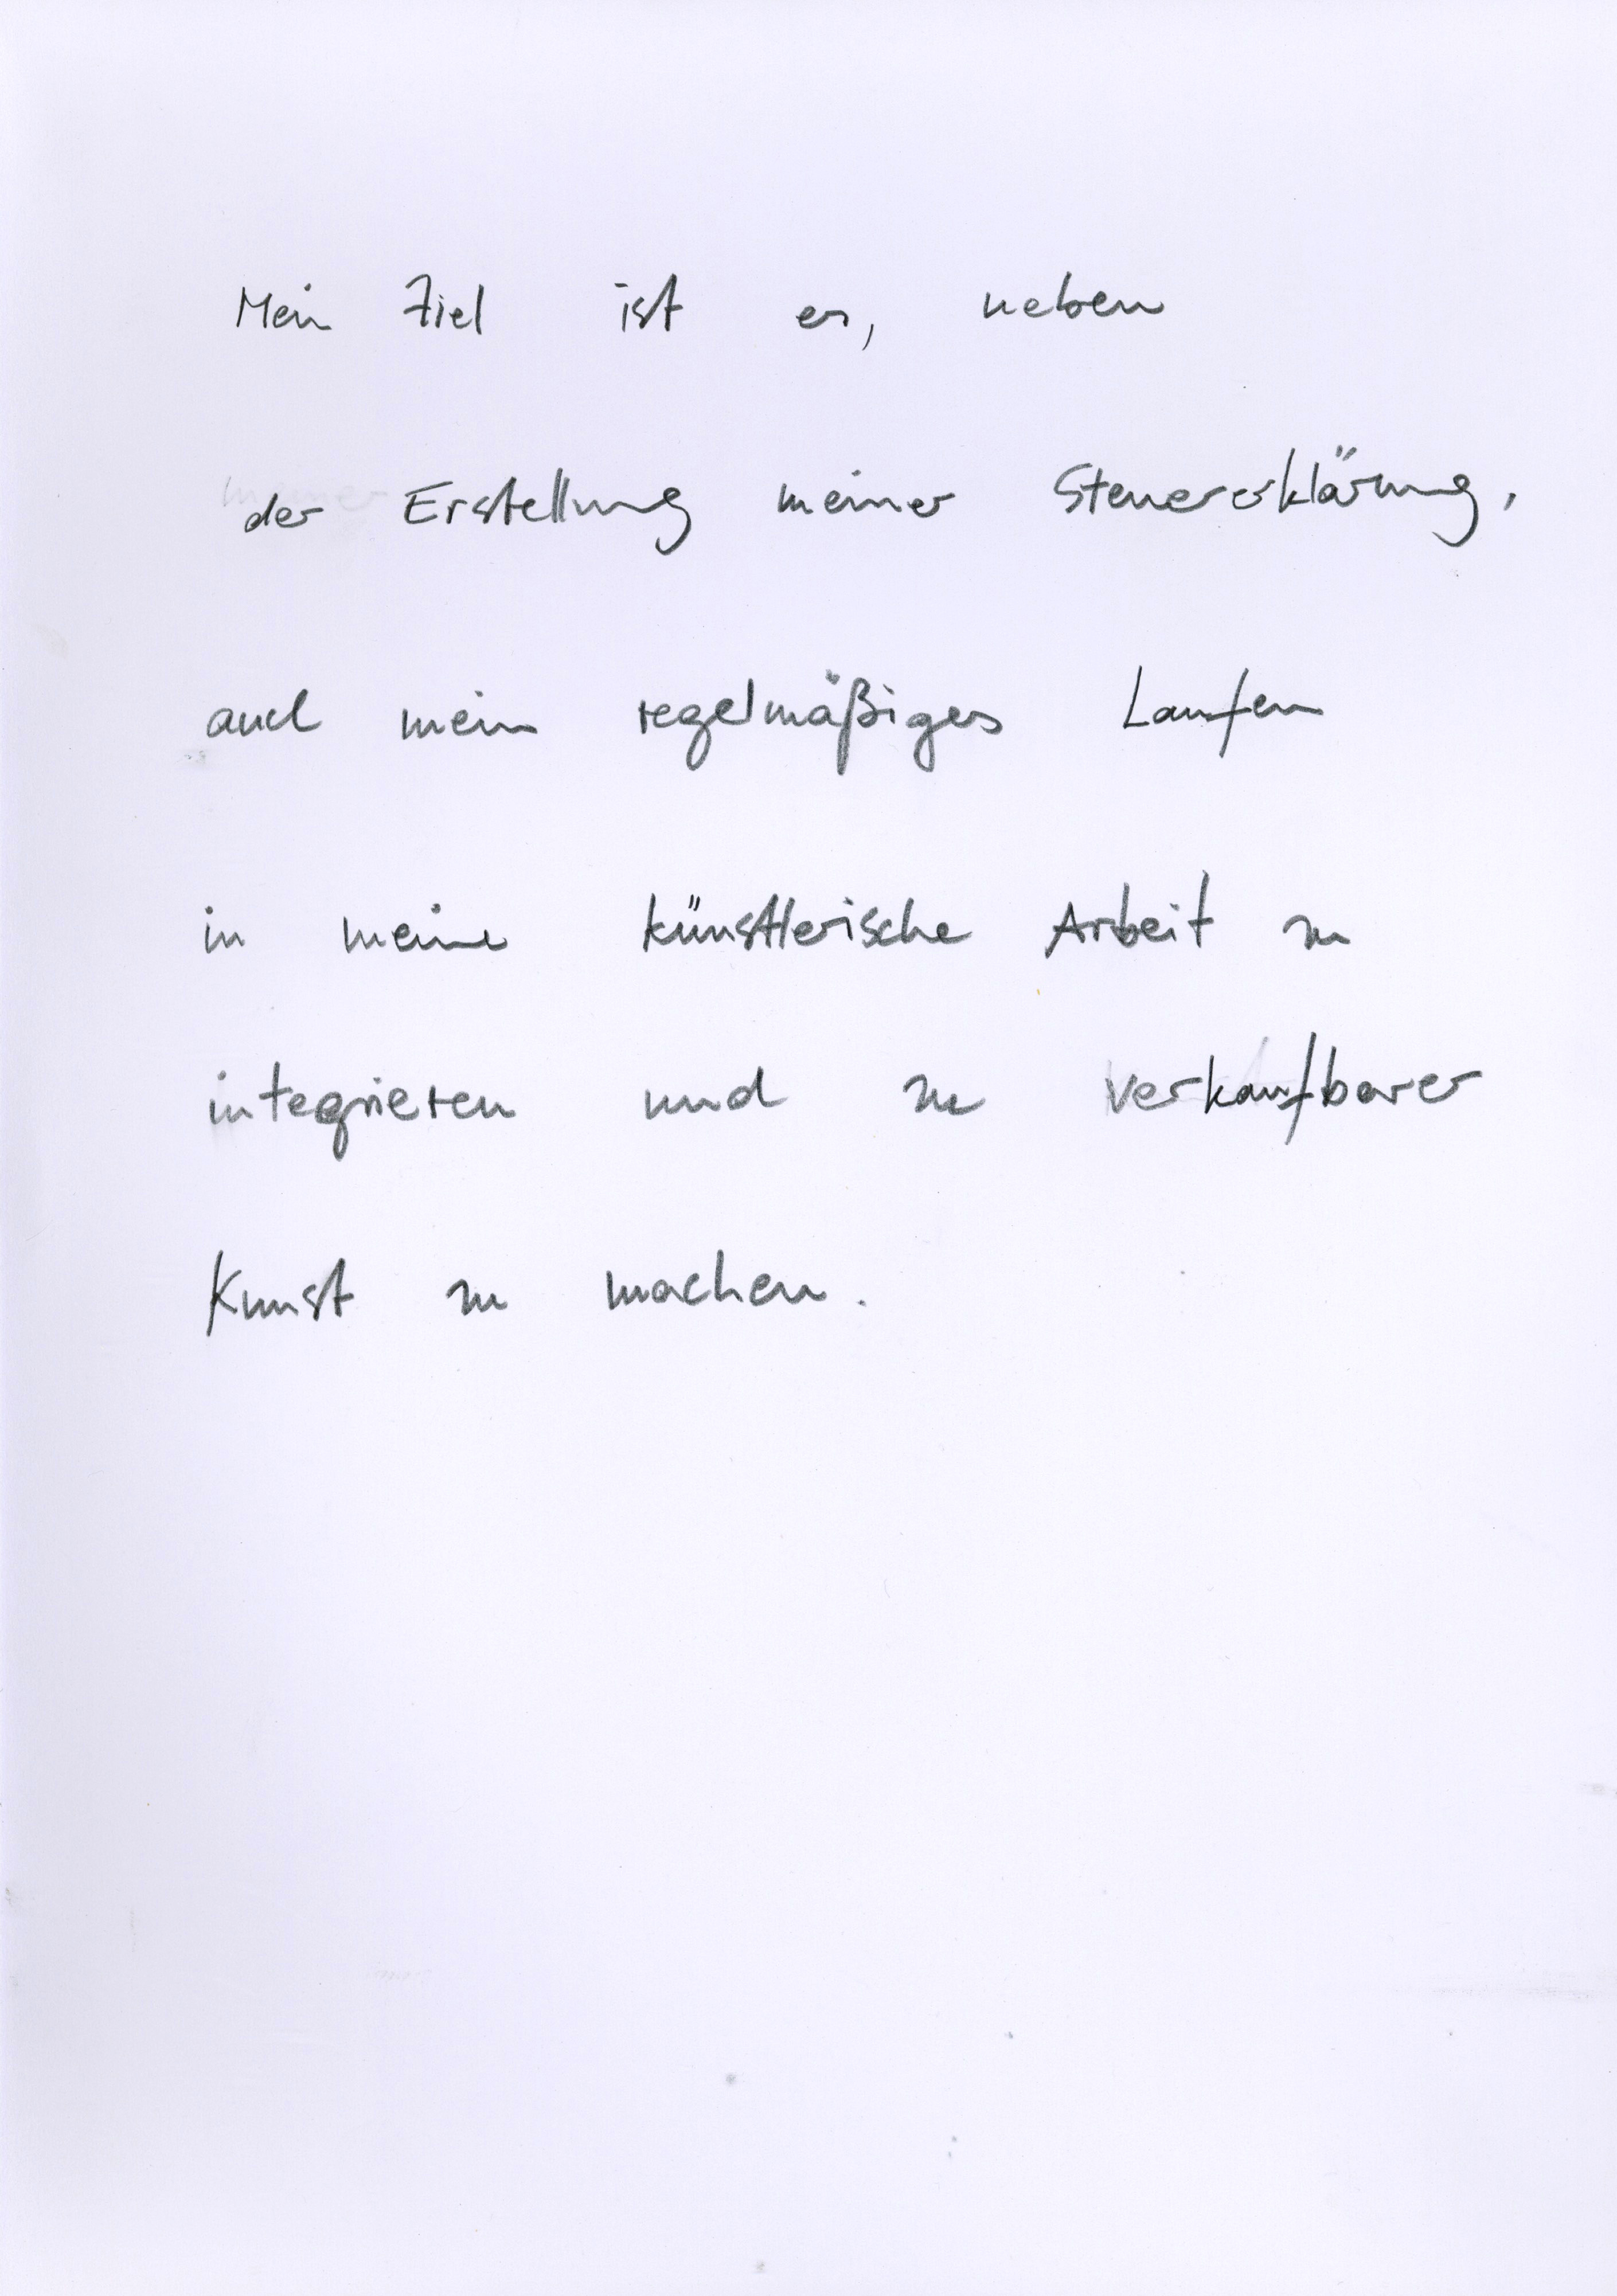 Mein Ziel ist es, neben
der Erstellung meiner Steuererklärung,
auch mein regelmäßiges Laufen
in meine künstlerische Arbeit zu
integrieren und zu verkaufbarer
Kunst zu machen.